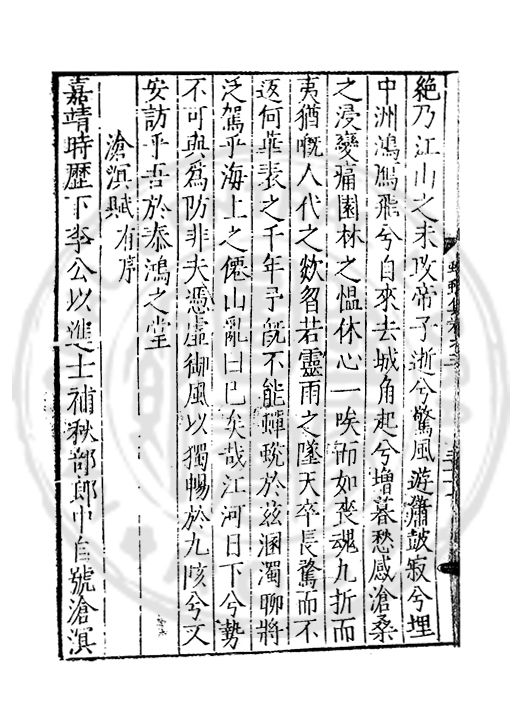 絶乃江山之未改帝子逝兮驚風遊簫鼓寂兮埋
中洲鴻鴈飛兮自來去城角起兮增暮愁感滄桑
之浸變痛園林之愠休心一唉而如喪魂九折而
夷猶嘅人代之欻曶若靈雨之墜天卒長驚而不
返何華表之千年予旣不能蟬蛻於兹溷濁聊將
泛駕乎海上之僊山亂曰已矣哉江河日下兮勢
不可與爲防非夫憑虛御風以獨暢於九陔兮又
安訪乎吾於泰鴻之堂
滄溟賦有序
嘉靖時歷下李公以進士補秋部郎中自號滄溟